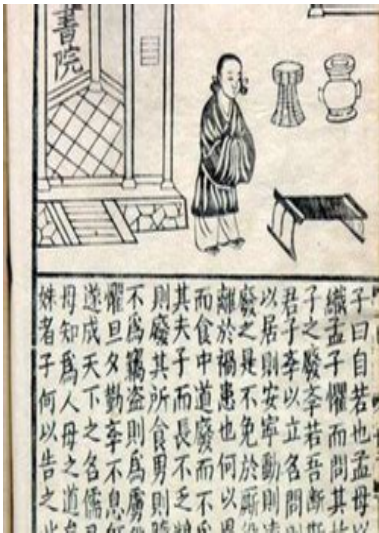 書院
子曰自若也孟母以
織孟子懼而問其故
子之廢斈若吾斷斯
君子斈以立名問則
以居則安寧動則遠
廢之是不免於厮役
離於禍患也何以異
而食中道廢而不爲
其夫子而長不乏糧
則廢其所食男則墮
不爲竊盗則爲虜
懼旦夕勤斈不息
遂成天下之名儒君
母知爲人母之道矣
姝者子何以告之此